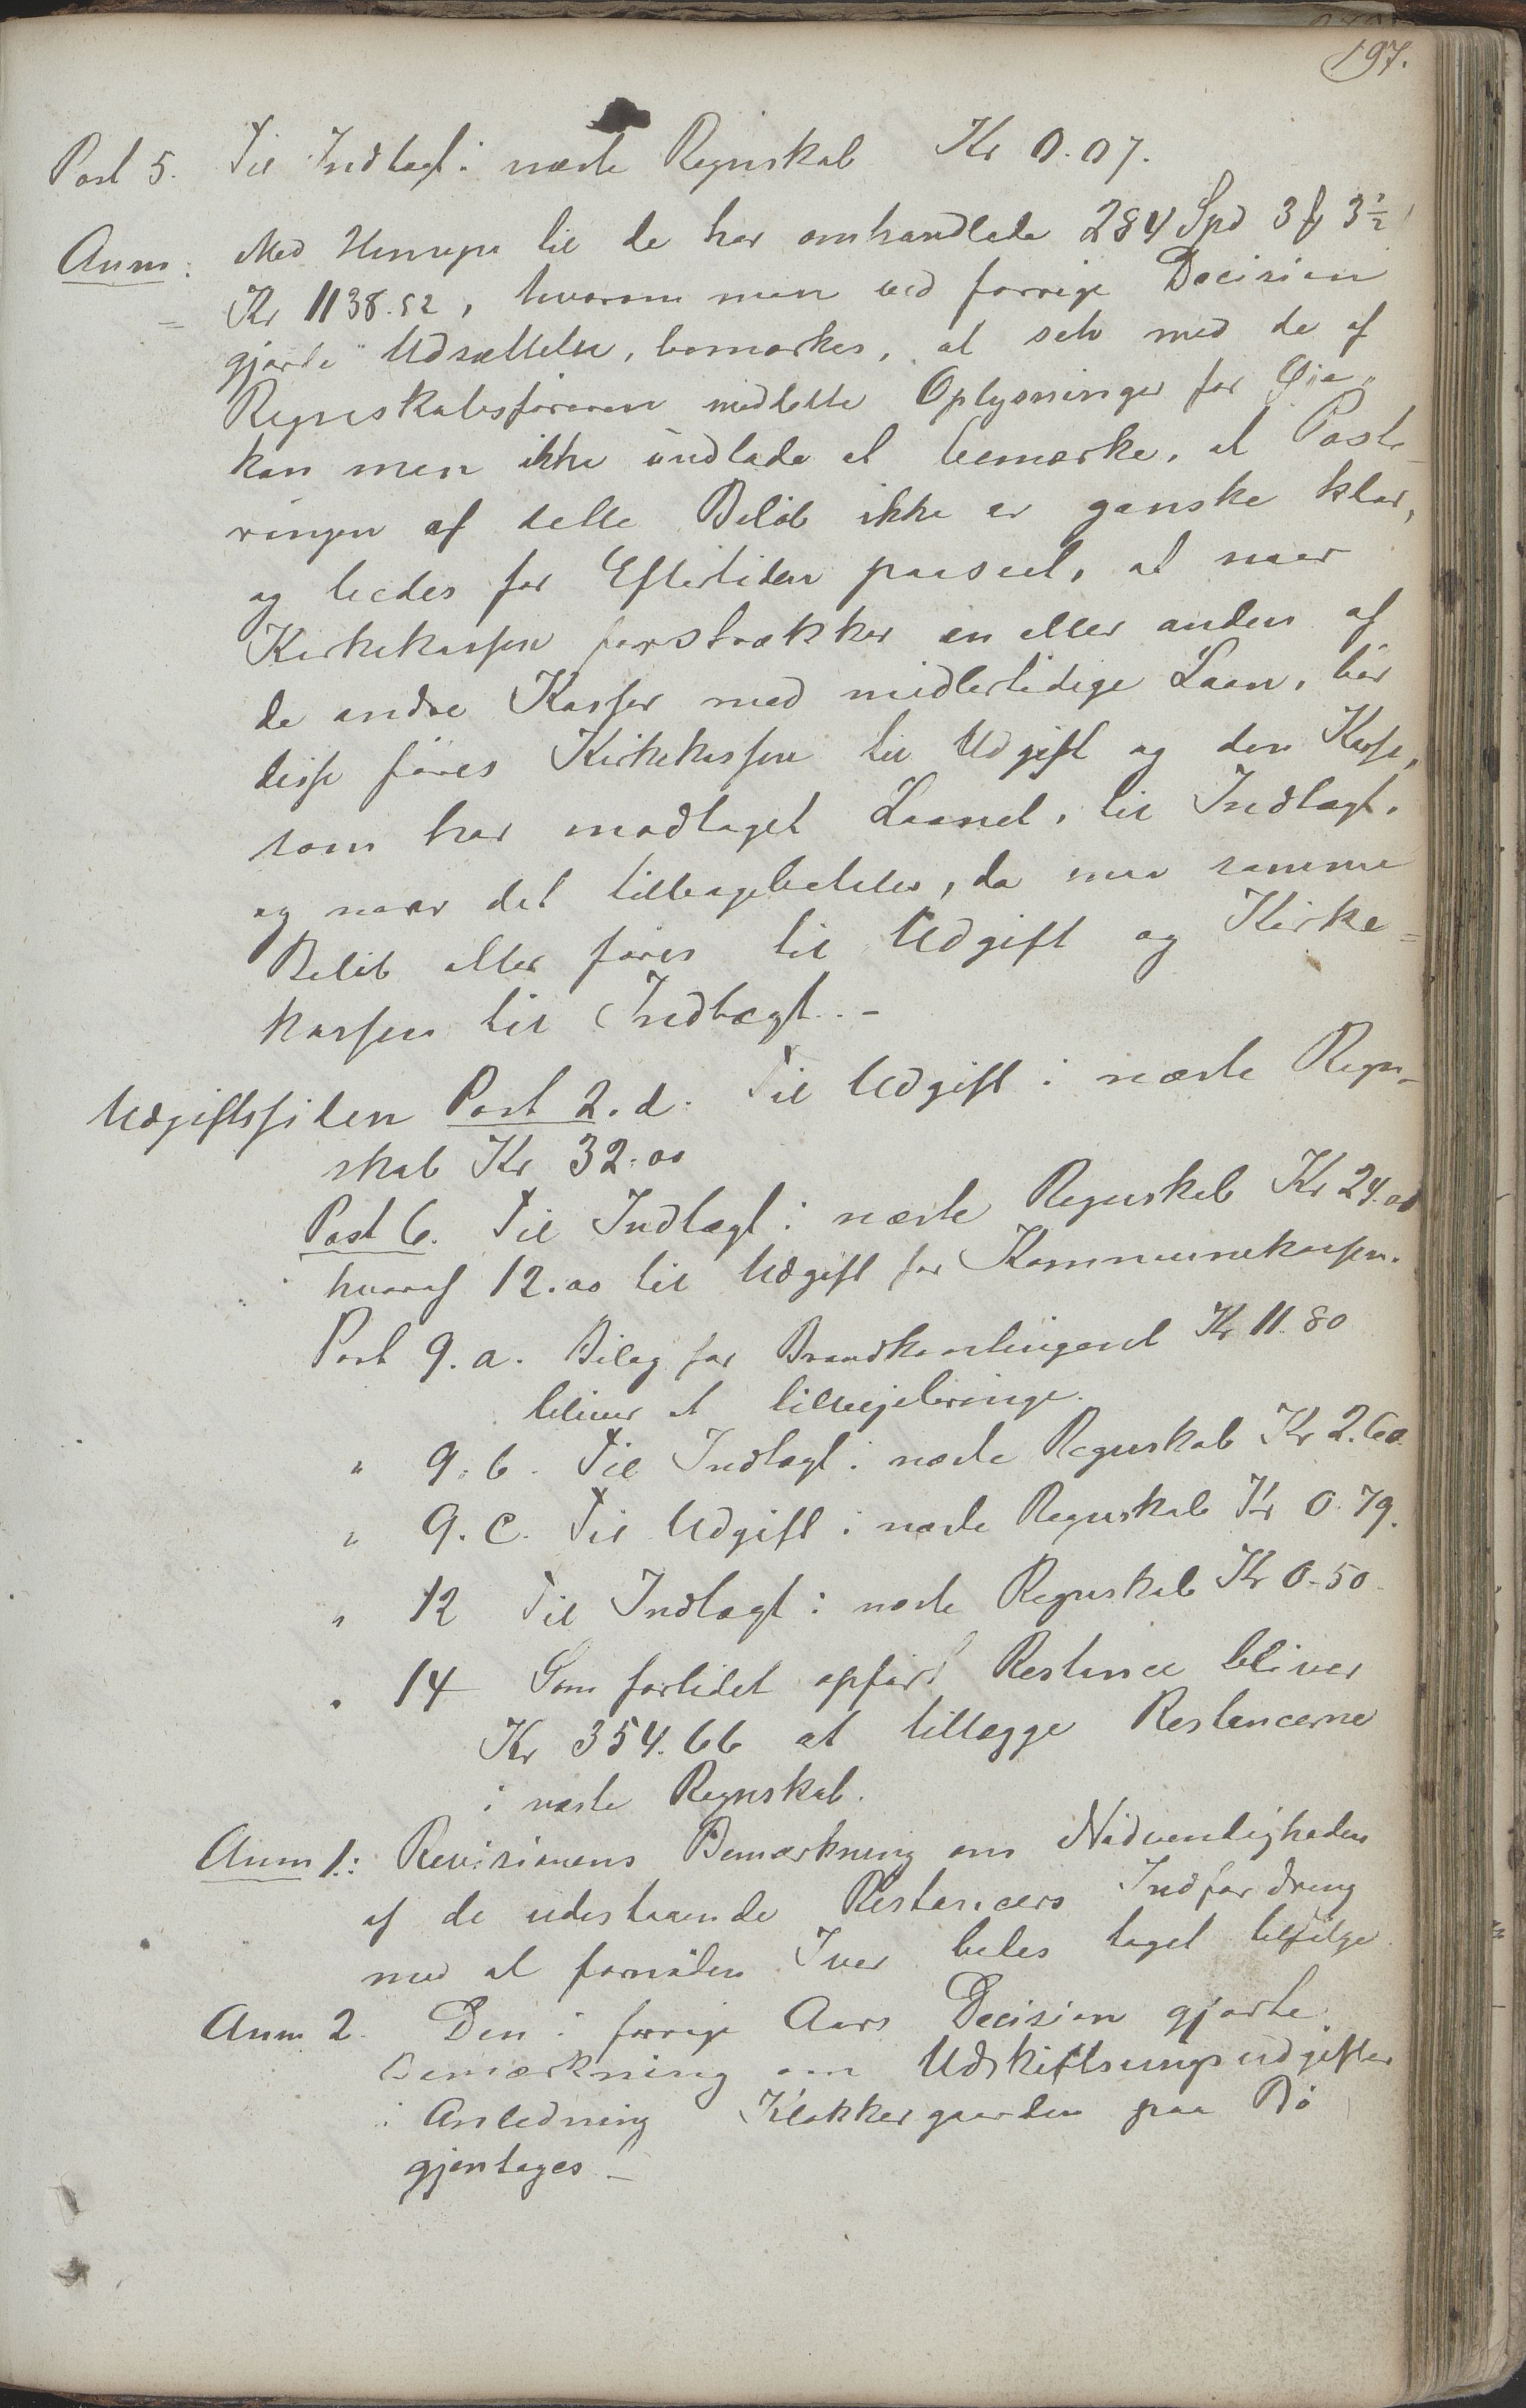 197.
Post 5. Til Indtægt i næste Regnskab Kr 0.07.
Anm: Med Hensyn til de her omhandlede 284 Spd 3 ʄ 3½
= Kr 1138.52, hvorom man ved forrige Decision
gjorde Udsættelse, bemærkes, at selv med de af
Regnskabsføreren meddelte Oplysninger for Øie
kan man ikke undlade at bemærke, at Poste-
ringen af dette Beløb ikke er ganske klar,
og bedes for Eftertiden paaseet, at naar
Kirkekassen forstrækker en eller anden af
de andre Kasser med midlertidige Laan, bør
disse føres Kirkekassen til Udgift og den Kasse,
som har modtaget Laanet, til Indtægt,
og naar det tilbagebetales, da maa samme
Beløb atter føres til Udgift og Kirke=
kassen til Indtægt. -
Udgiftssiden Post 2.d. Til Udgift i næste Regn-
skab Kr 32.00
Post 6. Til Indtægt i næste Regnskab Kr 24.00
hvoraf 12.00 til Udgift for Kommunekassen.
Post 9.a. Bilag for Brandkontingent Kr 11.80
bliver at tilvejebringe.
" 9.b. Til Indtægt i næste Regnskab Kr 2.60.
" 9.c. Til Udgift i næste Regnskab Kr 0.79.
" 12 Til Indtægt i næste Regnskab Kr 0-50
" 14 Som forlidet opført Restance bliver
Kr 354.66 at tillægge Restancerne
i næste Regnskab.
Anm 1.: Revisionens Bemærkning om Nødvendigheden
af de udestaaende Restancers Indfordring
med al fornøden Iver bedes taget tilfølge.
Anm 2. Den i forrige Aars Decision gjorte
Bemærkning om Udskiftningsudgifter
i Anledning Klokkergaarden paa Bø
gjentages -